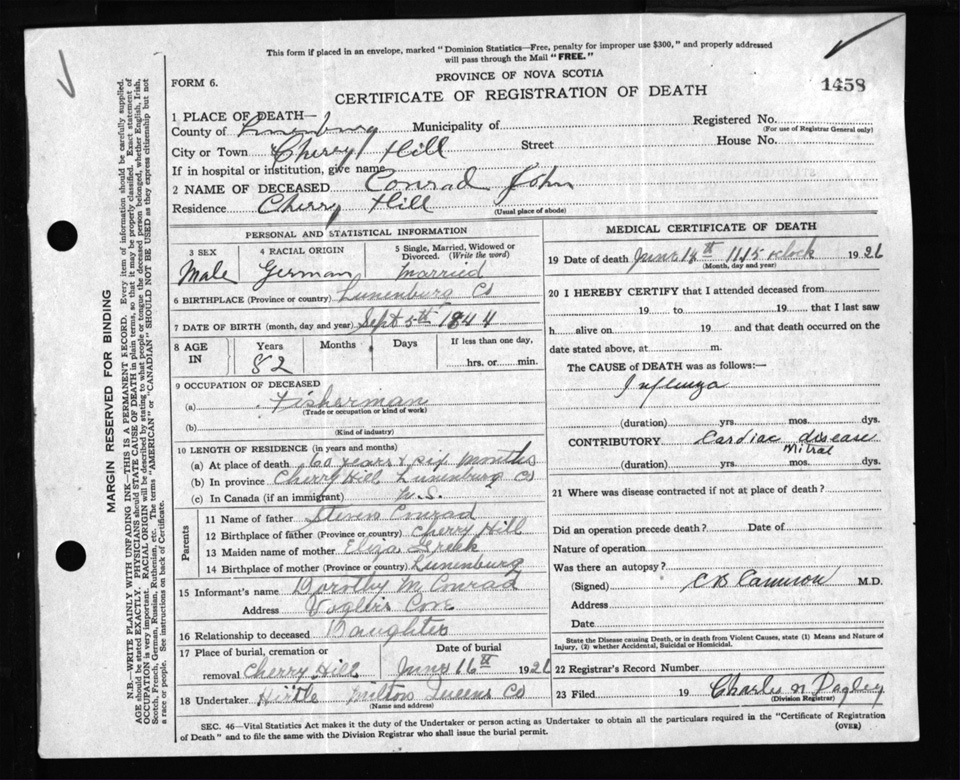 This form if placed in an envelope, marked "Dominion Statistics—Free, penalty for improper use $300," and properly addressed
will pass through the Mail "FREE."
FORM 6.
PROVINCE OF NOVA SCOTIA
1458
CERTIFICATE OF REGISTRATION OF DEATH
1 PLACE OF DEATH—
County of Lunenburg Municipality of Registered No.
(For use of Registrar General only)
City or Town Cherry Hill Street House No.
If in hospital or institution, give name
2 NAME OF DECEASED Conrad John
Residence Cherry Hill
(Usual place of abode)
PERSONAL AND STATISTICAL INFORMATION
3 SEX 4 RACIAL ORIGIN 5 Single, Married, Widowed or Divorced. (Write the word)
Male German Married
6 BIRTHPLACE (Province or country) Lunenburg Co
7 DATE OF BIRTH (month, day and year) Sept 5th 1844
8 AGE IN Years Months Days If less than one day,
82 hrs. or min.
9 OCCUPATION OF DECEASED
(a) Fisherman
(Trade or occupation or kind of work)
(b)
(Kind of industry)
10 LENGTH OF RESIDENCE (in years and months)
(a) At place of death 60 years & six Months
(b) In province Cherry Hill Lunenburg Co
(c) In Canada (if an immigrant) N.S.
Parents
11 Name of father Steven Conrad
12 Birthplace of father (Province or country) Cherry Hill
13 Maiden name of mother Eliza
14 Birthplace of mother (Province or country) Lunenburg
15 Informant's name Dorothy M Conrad
Address Voglers Cove
16 Relationship to deceased Daughter
17 Place of burial, cremation or removal Cherry Hill
Date of burial June 16th 1926
18 Undertaker Hirtle Milton Queens Co
(Name and address)
MEDICAL CERTIFICATE OF DEATH
19 Date of death June 1115 oclock 1926
(Month, day and year)
20 I HEREBY CERTIFY that I attended deceased from
19 to 19 that I last saw
h alive on 19 and that death occurred on the
date stated above, at m.
The CAUSE OF DEATH was as follows:—
Influenza
(duration) yrs. mos. dys.
CONTRIBUTORY Cardiac disease
Mitral
(duration) yrs. mos. dys.
21 Where was disease contracted if not at place of death?
Did an operation precede death? Date of
Nature of operation
Was there an autopsy?
(Signed) C B Cameron M.D.
Address
Date
State the Disease causing Death, or in death from Violent Causes, state (1) Means and Nature of
Injury, (2) whether Accidental, Suicidal or Homicidal.
22 Registrar's Record Number
23 Filed 19 Charles N Dagley
(Division Registrar)
SEC. 46—Vital Statistics Act makes it the duty of the Undertaker or person acting as Undertaker to obtain all the particulars required in the "Certificate of Registration
of Death" and to file the same with the Division Registrar who shall issue the burial permit.
(OVER)
MARGIN RESERVED FOR BINDING
N.B.—WRITE PLAINLY WITH UNFADING INK—THIS IS A PERMANENT RECORD. Every item of information should be carefully supplied.
AGE should be stated EXACTLY. PHYSICIANS should STATE CAUSE OF DEATH in plain terms, so that it may be properly classified. Exact statement of
OCCUPATION is very important. RACIAL ORIGIN will be described by stating to what people or tongue the deceased person belonged, whether English, Irish,
Scotch, French, German, Russian, Ruthenian, etc. The terms "AMERICAN" or "CANADIAN" SHOULD NOT BE USED as they express citizenship but not
a race or people. See instructions on back of Certificate.